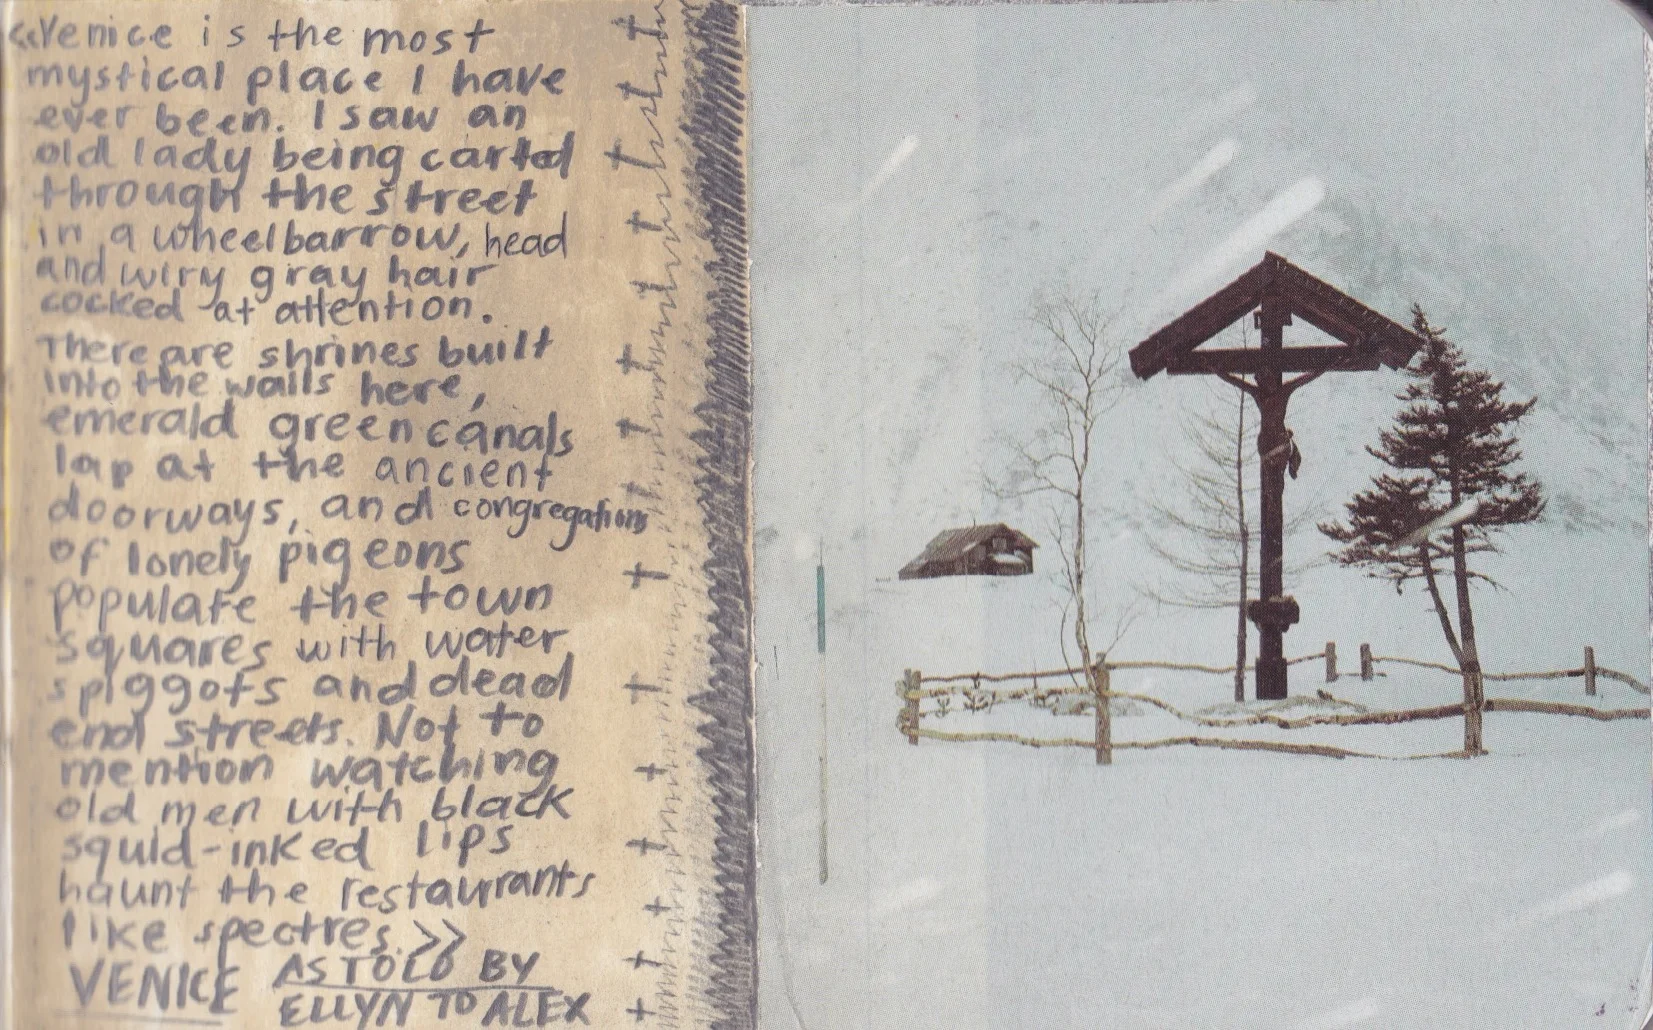 <<Venice is the most
mystical place I have
ever been. I saw an
old lady being carted
through the street
in a wheelbarrow, head
and wiry gray hair
cocked at attention.
There are shrines built
into the walls here,
emerald green canals
lap at the ancient
doorways, and congregations
of lonely pigeons
populate the town
squares with water
spiggots and dead
end streets. Not to
mention watching
old men with black
squid-inked lips
haunt the restaurants
like spectres.>>
VENICE AS TOLD BY
ELLYN TO ALEX